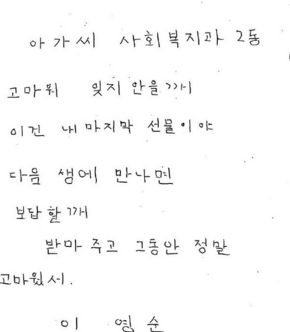 아가씨 사회복지과 2동
고마워 잊지 안을께
이건 내 마지막 선물이야
다음 생에 만나면
보답할께
받마 주고 그동안 정말
고마웠서.
이 영순